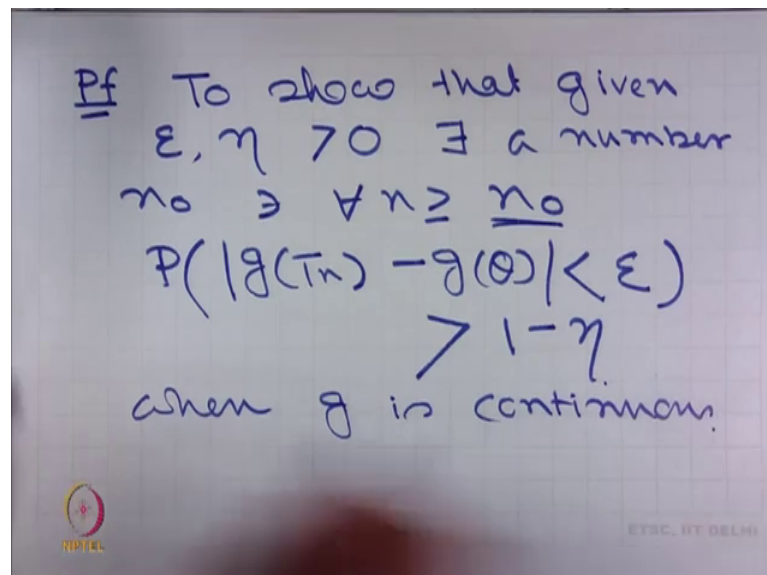 Pf To show that given
ε, η > 0 ∃ a number
n₀ ∋ ∀ n ≥ n₀
P( |g(Tn) - g(θ)| < ε)
> 1 - η
when g is continuous.
NPTEL
ETSC, IIT DELHI